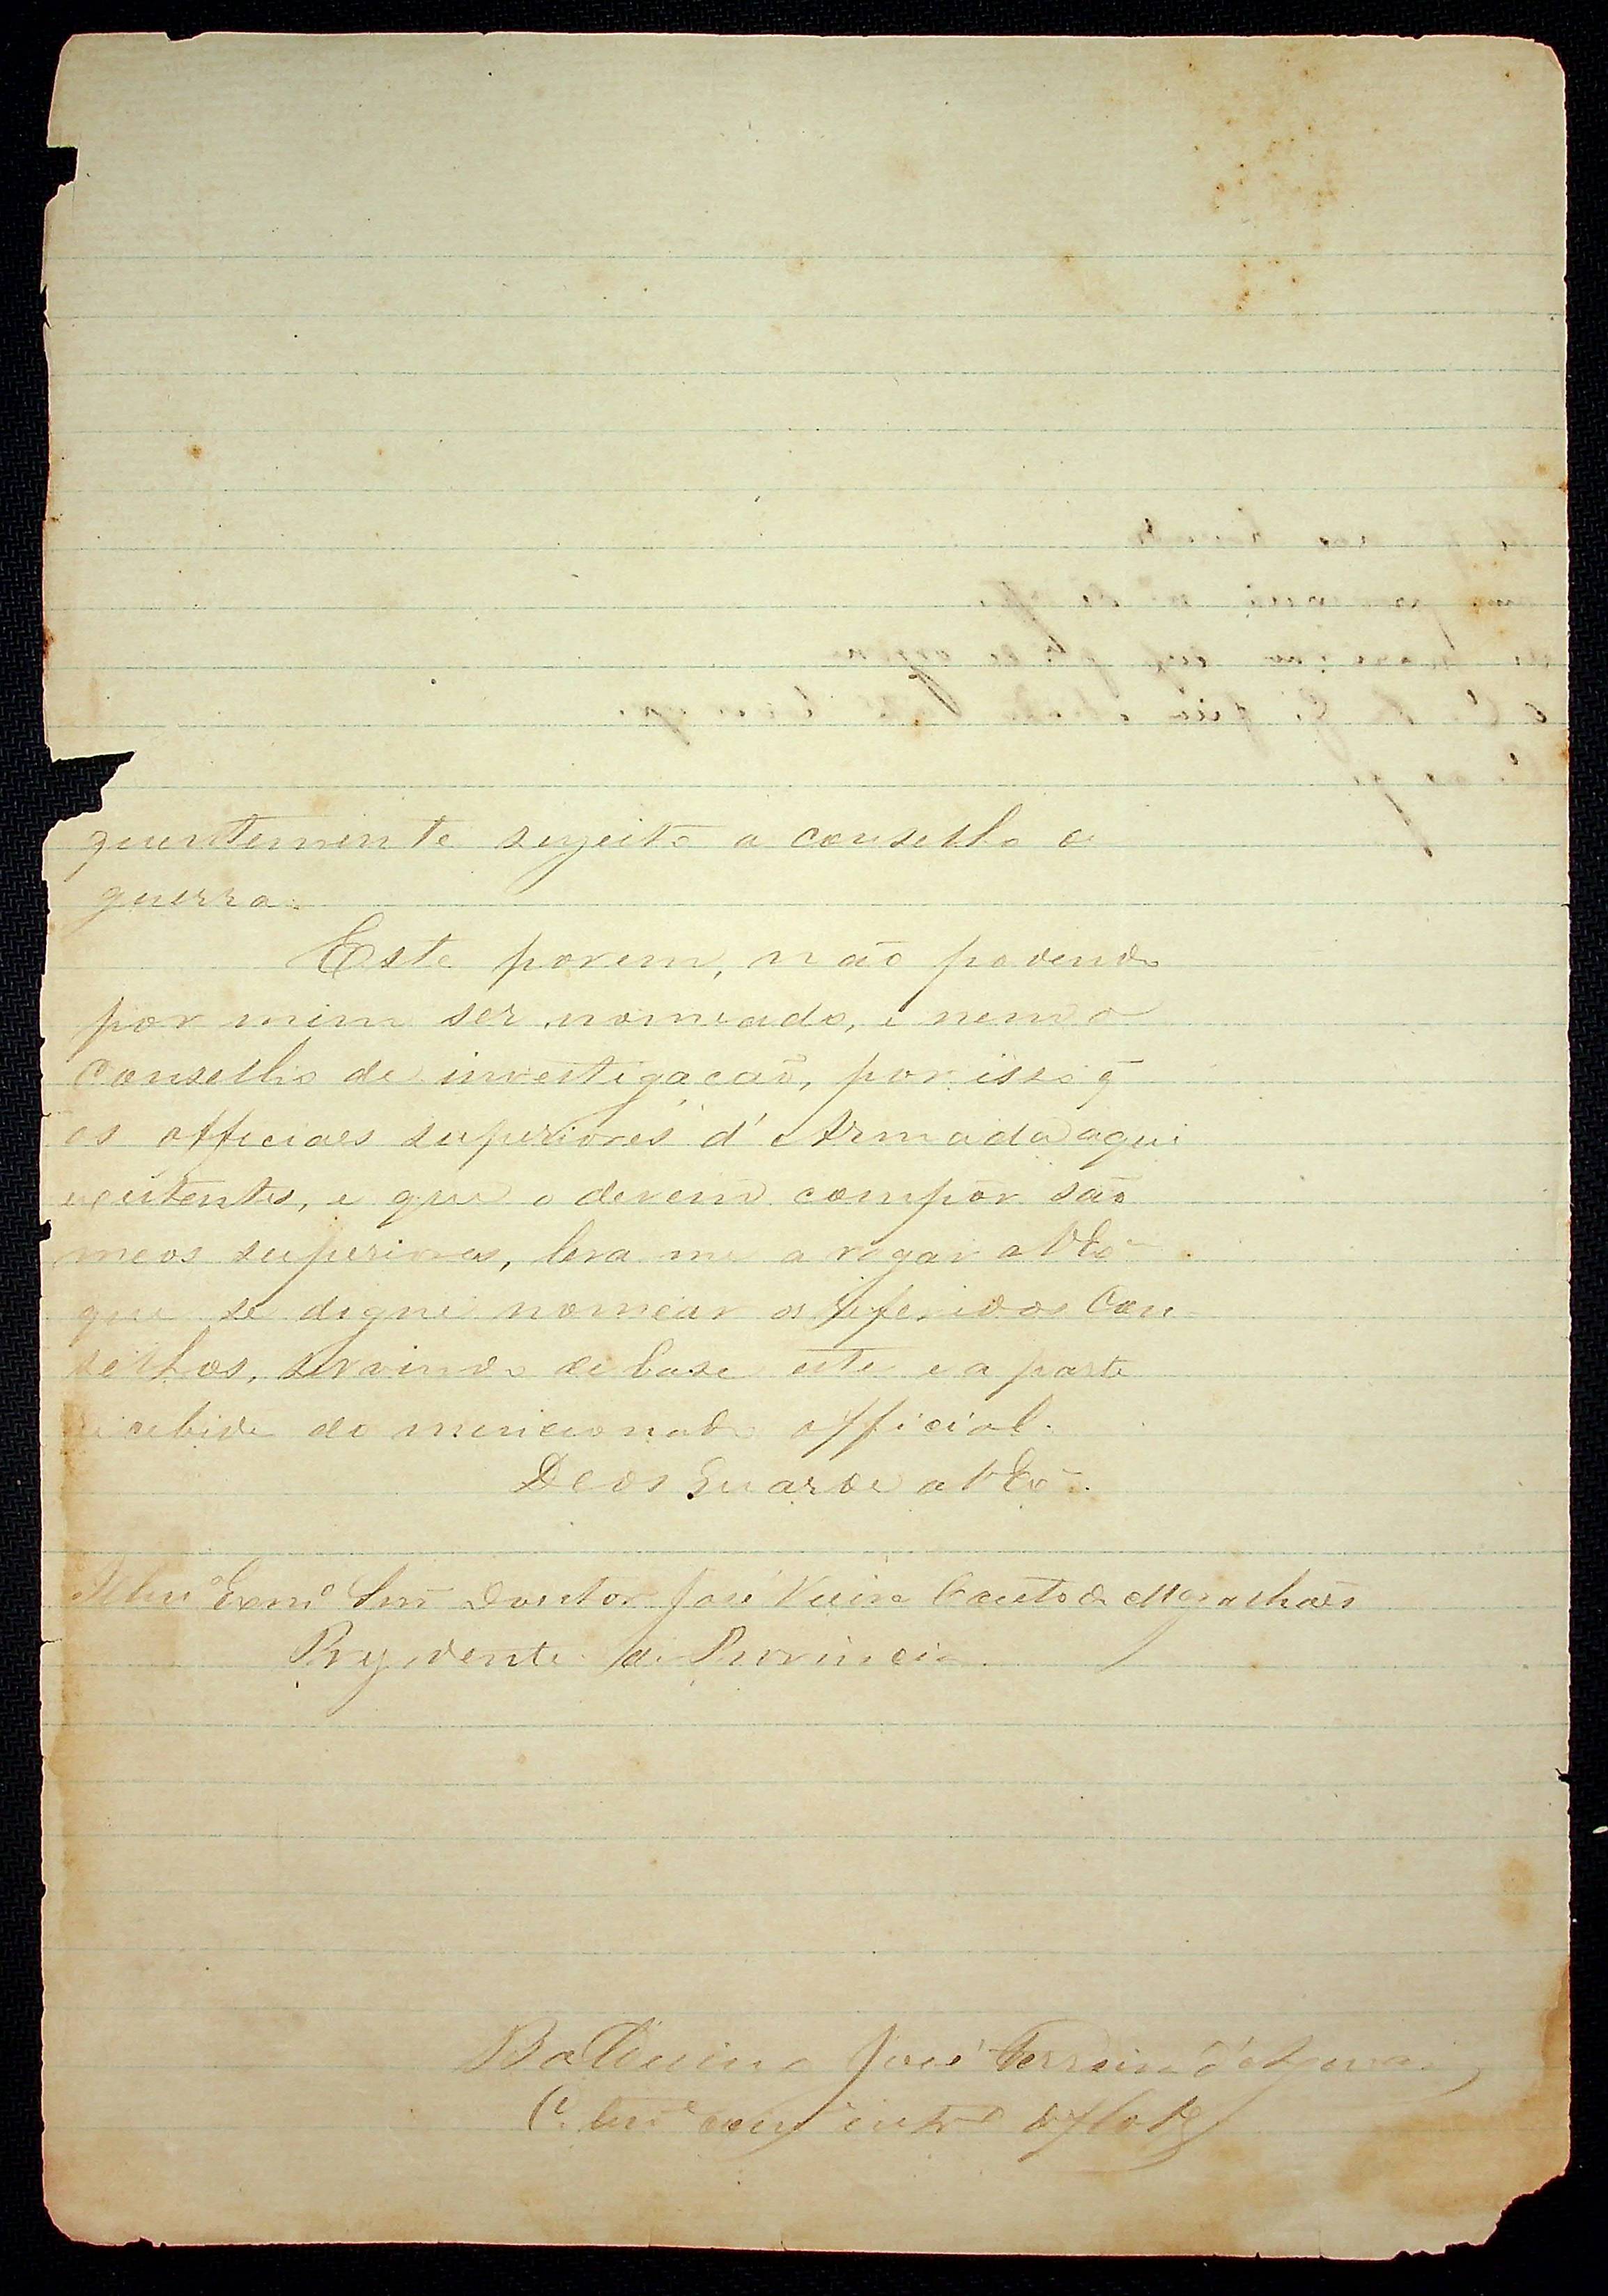 quentemente sugeito a conselho de
guerra.
Este porem, não podendo
por mim ser nomeado, e nem o
Conselho de investigação, por isso q̃
os officiaes superiores d'Armada aqui
existentes, e que o devem compôr são
meos superiores, leva me a rogar a VExª
que se digne nomear os referidos Con-
selhos, servindo de base este e a parte
recebida do mencionado official.
Deos Guarde a VExª.
Illmº Exmº Snr Doutor José Vieira Couto de Magalhães
Prezidente da Provincia.
Balduino José Ferreira d'Aguiar
Cap Tenᵉ comᵉ intrº da Flotª